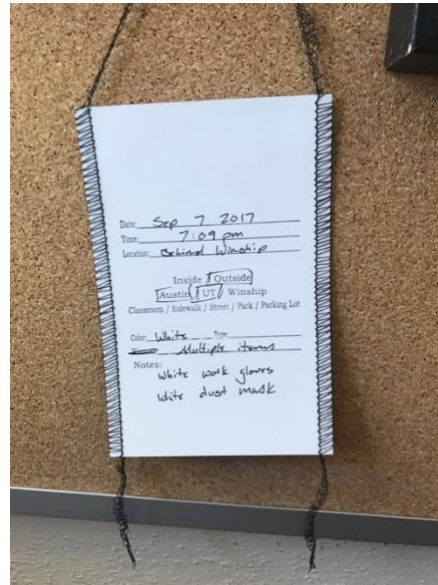 Date: Sep 7 2017
Time: 7:09 pm
Location: Behind Winship
Inside / Outside
Austin / UT / Winship
Classroom / Sidewalk / Street / Park / Parking Lot
Color: White Type:
Multiple items
Notes:
white work gloves
white dust mask